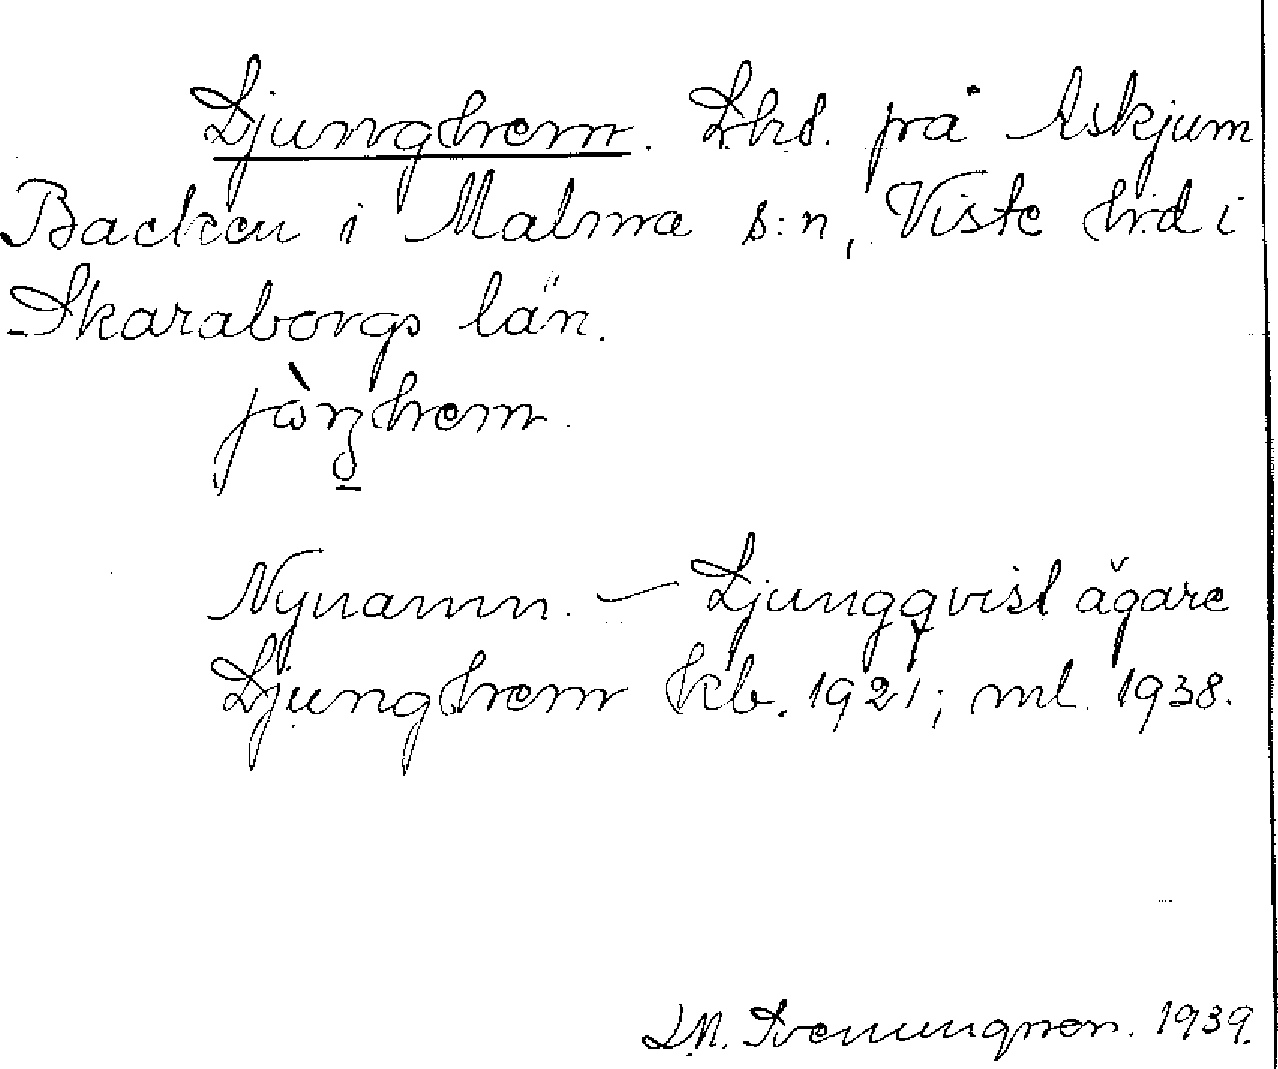 Ljunghem. Lhd. på Askjum
Backen i Malma s:n, Viste hd i
Skaraborgs län.
jòŋhem.
Nynamn. — Ljungqvist ägare
Ljunghem kb. 1921; ml. 1938.
D.N. Svenungsson. 1939.